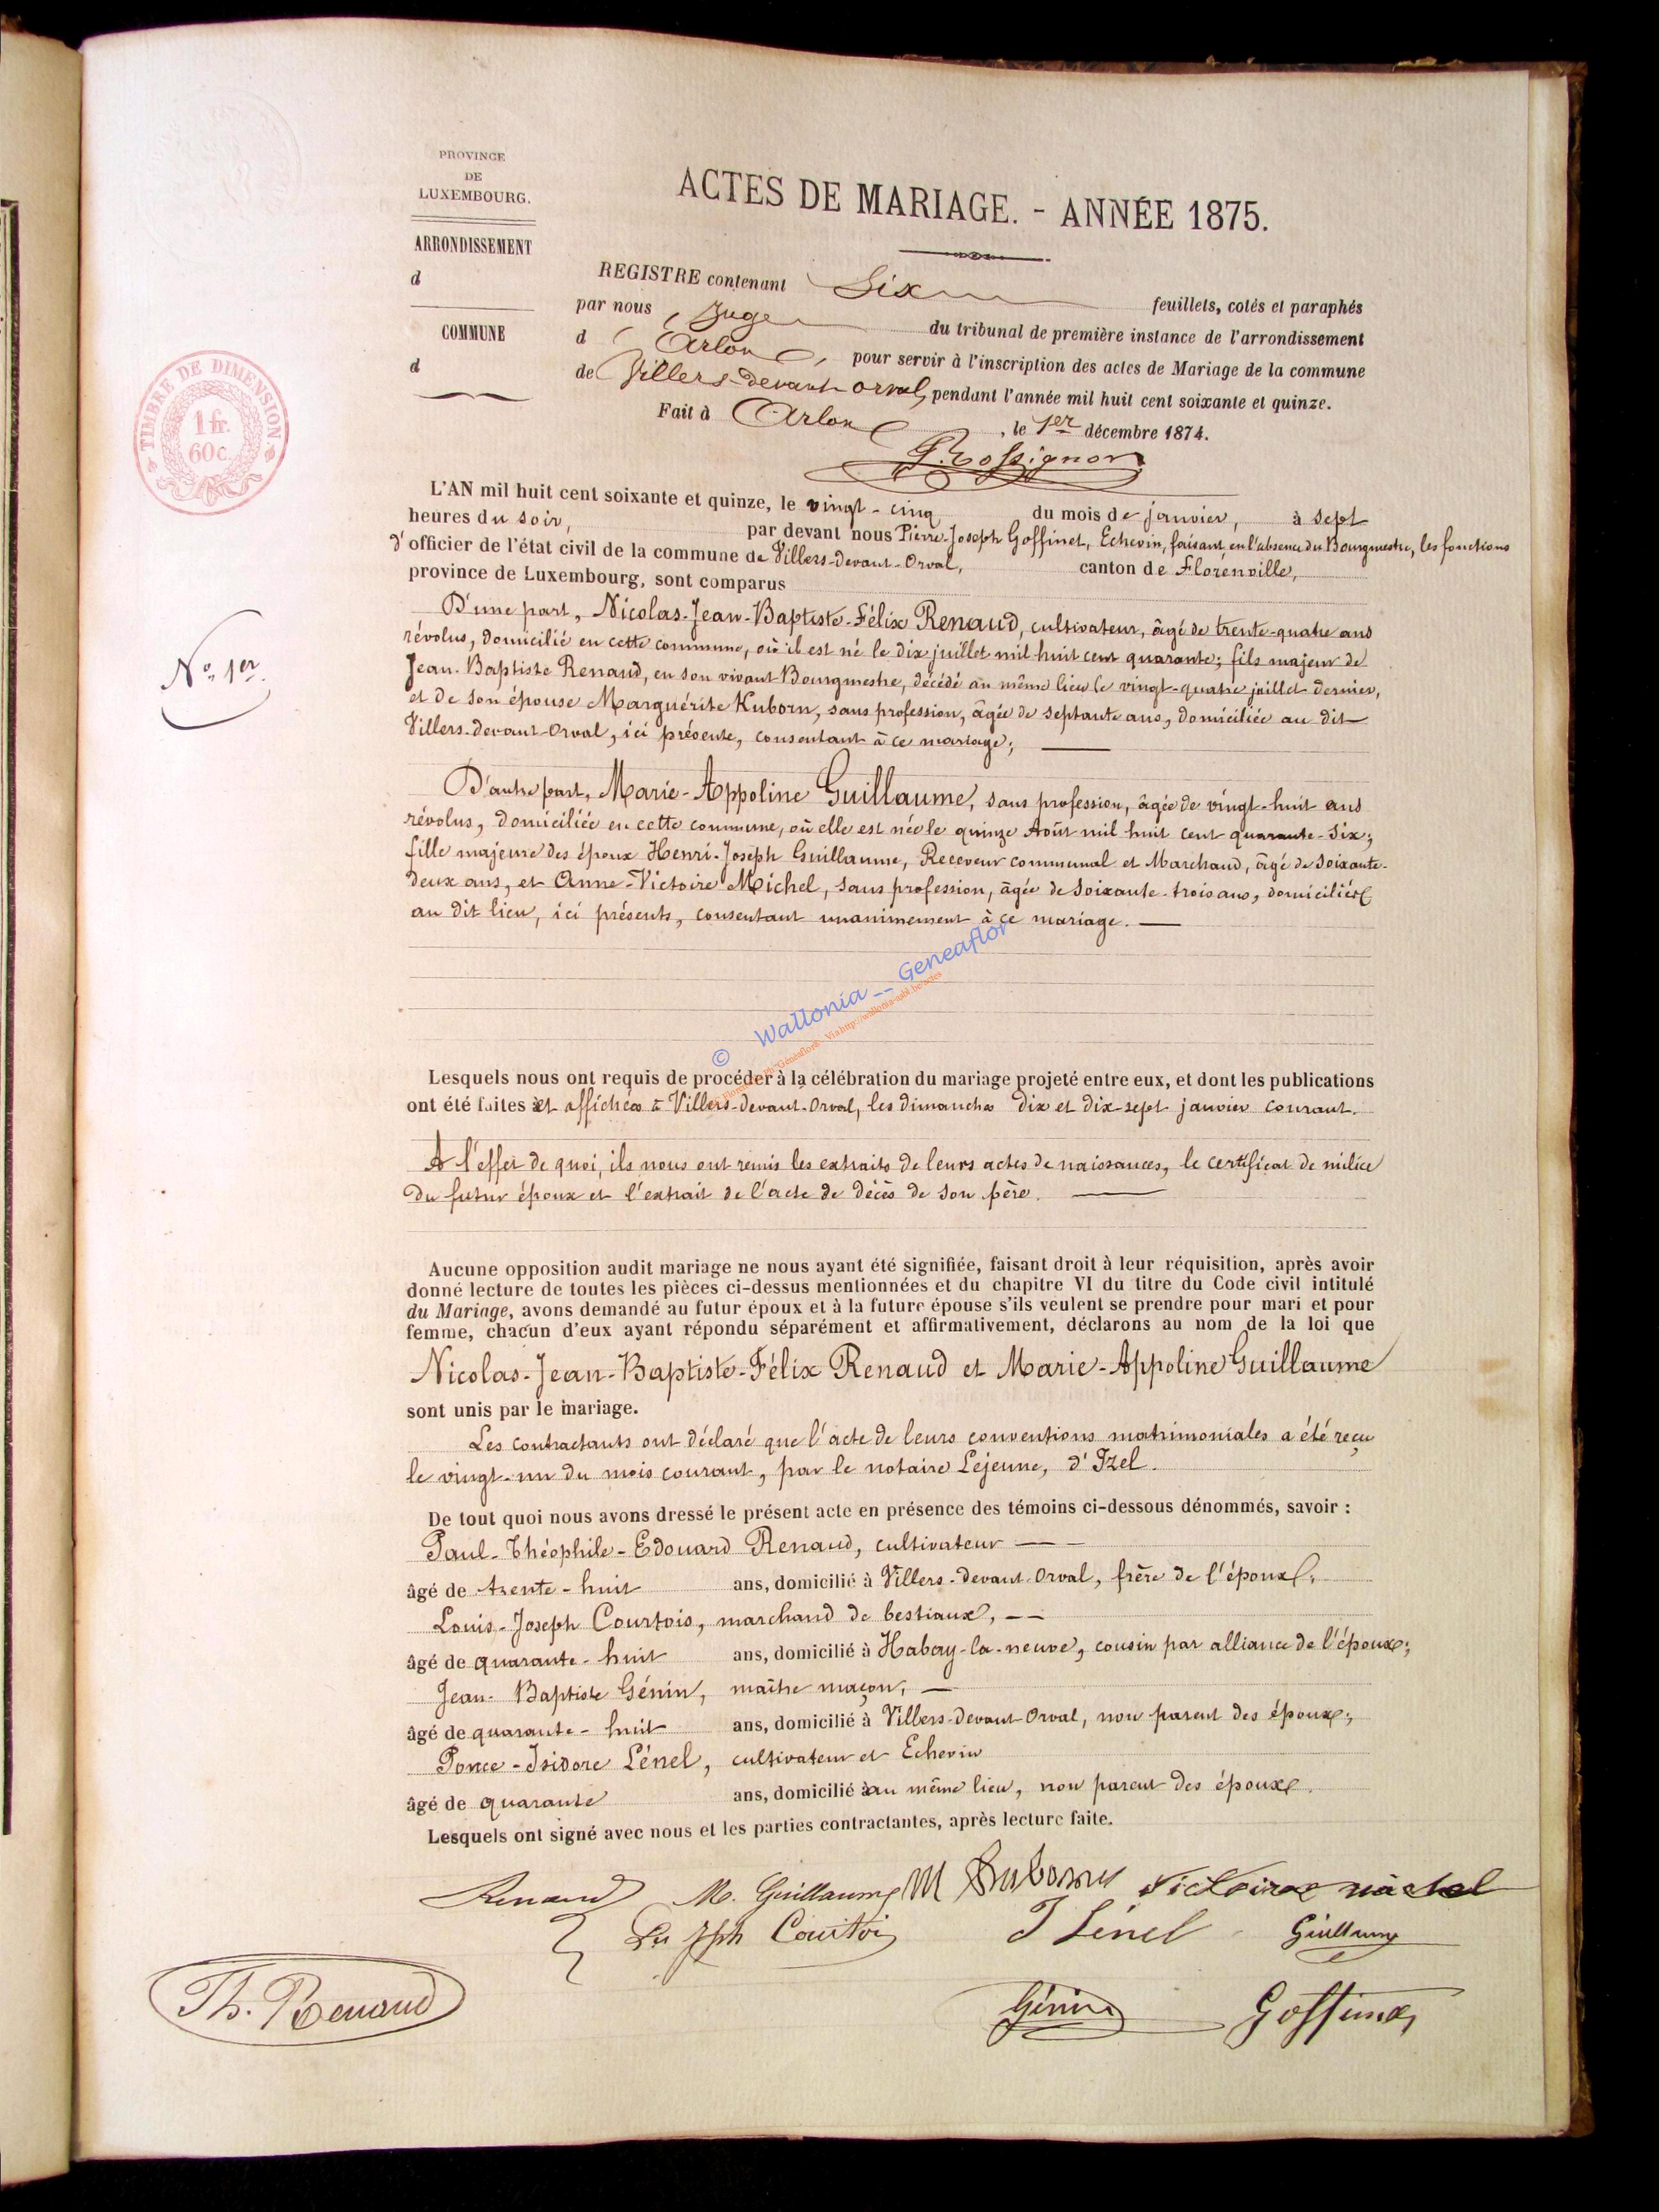 PROVINCE
DE
LUXEMBOURG.
ARRONDISSEMENT
d
COMMUNE
d
TIMBRE DE DIMENSION.
1 fr.
60c.
ACTES DE MARIAGE. - ANNÉE 1875.
REGISTRE contenant Six feuillets, cotés et paraphés
par nous Juge du tribunal de première instance de l'arrondissement
d'Arlon, pour servir à l'inscription des actes de Mariage de la commune
de Villers-devant-orval, pendant l'année mil huit cent soixante et quinze.
Fait à Arlon, le 1er décembre 1874.
Rossignon
L'AN mil huit cent soixante et quinze, le vingt-cinq du mois de janvier, à sept
heures du soir, par devant nous Pierre-Joseph Goffinet, Echevin, faisant, en l'absence du Bourgmestre, les fonctions
d'officier de l'état civil de la commune de Villers-devant-Orval, canton de Florenville,
province de Luxembourg, sont comparus
No. 1er.
D'une part, Nicolas-Jean-Baptiste-Félix Renaud, cultivateur, âgé de trente-quatre ans
révolus, domicilié en cette commune, où il est né le dix juillet mil huit cent quarante; fils majeur de
Jean-Baptiste Renaud, en son vivant Bourgmestre, décédé au même lieu le vingt-quatre juillet dernier,
et de son épouse Marguérite Kuborn, sans profession, âgée de septante ans, domiciliée au dit
Villers-devant-Orval, ici présente, consentant à ce mariage;
D'autre part, Marie-Appoline Guillaume, sans profession, âgée de vingt-huit ans
révolus, domiciliée en cette commune, où elle est née le quinze Août mil huit cent quarante-six;
fille majeure des époux Henri-Joseph Guillaume, Receveur communal et Marchand, âgé de soixante-
deux ans, et Anne-Victoire Michel, sans profession, âgée de soixante-trois ans, domiciliés
au dit lieu, ici présents, consentant unanimement à ce mariage.
© Wallonia -- Geneaflor
Lesquels nous ont requis de procéder à la célébration du mariage projeté entre eux, et dont les publications
ont été faites et affichées à Villers-devant-Orval, les dimanches dix et dix-sept janvier courant.
A l'effet de quoi, ils nous ont remis les extraits de leurs actes de naissances, le certificat de milice
du futur époux et l'extrait de l'acte de décès de son père.
Aucune opposition audit mariage ne nous ayant été signifiée, faisant droit à leur réquisition, après avoir
donné lecture de toutes les pièces ci-dessus mentionnées et du chapitre VI du titre du Code civil intitulé
du Mariage, avons demandé au futur époux et à la future épouse s'ils veulent se prendre pour mari et pour
femme, chacun d'eux ayant répondu séparément et affirmativement, déclarons au nom de la loi que
Nicolas-Jean-Baptiste-Félix Renaud et Marie-Appoline Guillaume
sont unis par le mariage.
Les contractants ont déclaré que l'acte de leurs conventions matrimoniales a été reçu
le vingt-un du mois courant, par le notaire Lejeune, d'Izel.
De tout quoi nous avons dressé le présent acte en présence des témoins ci-dessous dénommés, savoir :
Paul-Théophile-Edouard Renaud, cultivateur
âgé de trente-huit ans, domicilié à Villers-devant-Orval, frère de l'époux,
Louis-Joseph Courtois, marchand de bestiaux,
âgé de quarante-huit ans, domicilié à Habay-la-neuve, cousin par alliance de l'époux;
Jean-Baptiste Génin, maître maçon,
âgé de quarante-huit ans, domicilié à Villers-devant-Orval, non parent des époux;
Ponce-Isidore Lénel, cultivateur et Echevin
âgé de quarante ans, domicilié au même lieu, non parent des époux.
Lesquels ont signé avec nous et les parties contractantes, après lecture faite.
Renaud M. Guillaume M Kuborn Victoire michel
Jph Courtoi I Lénel Guillaume
Th. Renaud Génin Goffinet